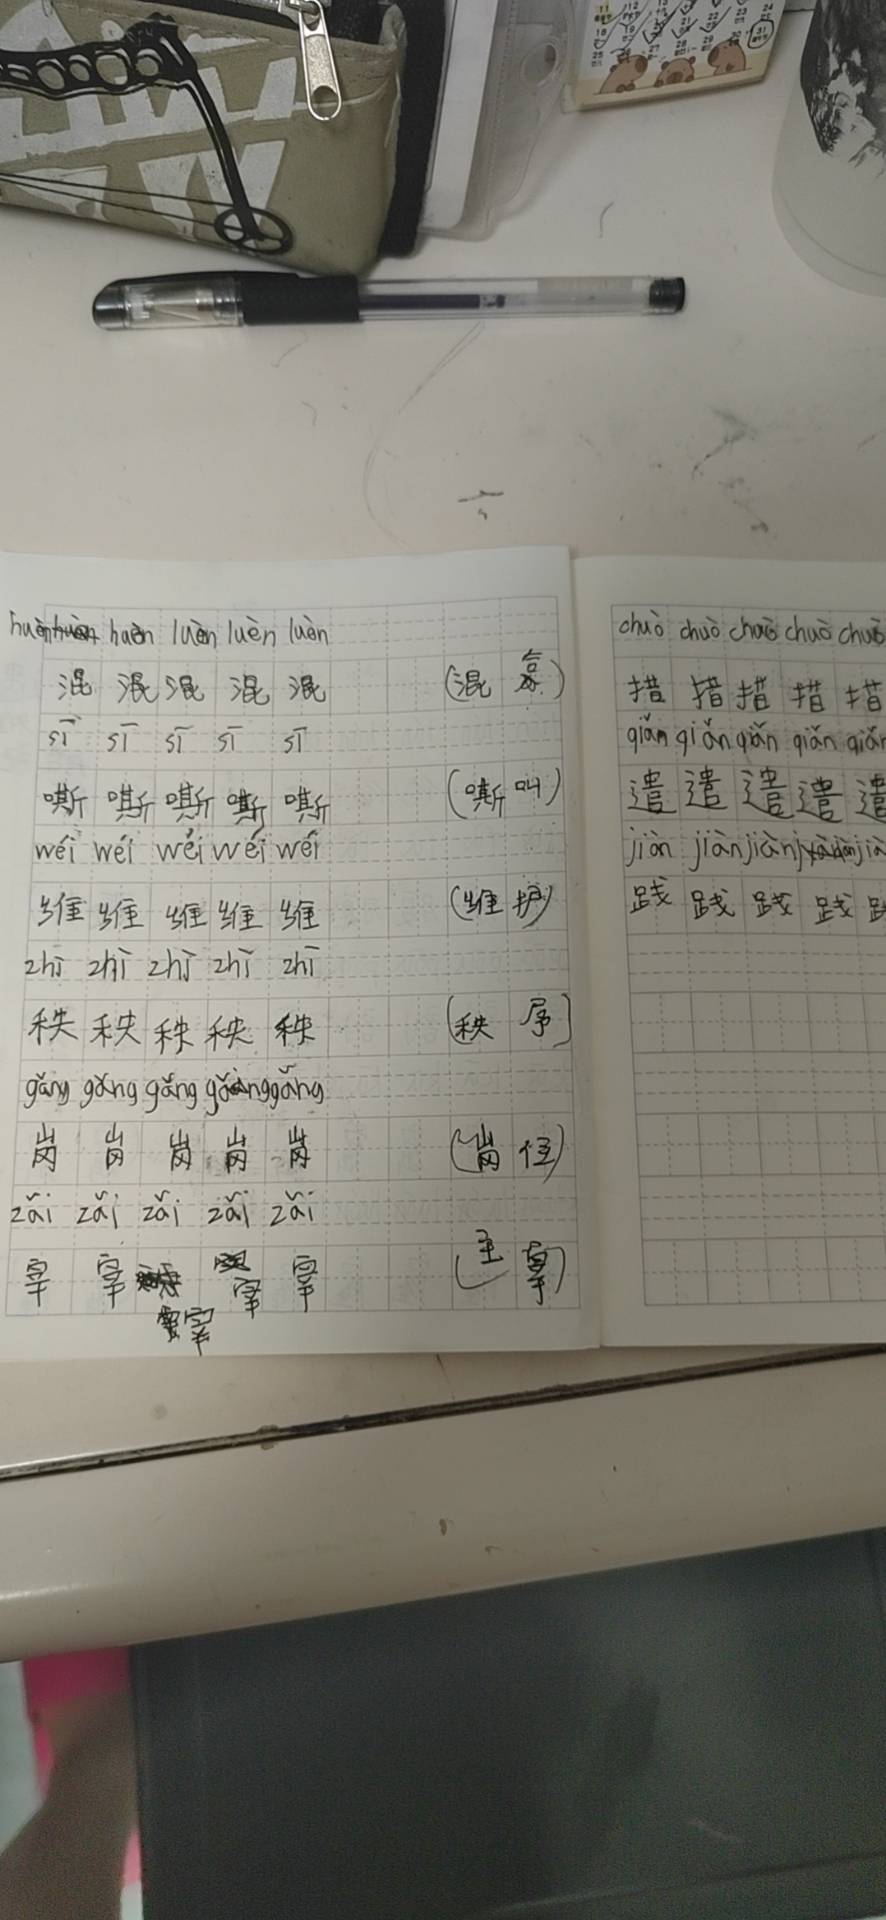 huèn luèn luèn luèn
混 混 混 混 混 (混
sī sī sī sī sī
嘶 嘶 嘶 嘶 嘶 (嘶叫)
wéi wéi wéi wéi wéi
维 维 维 维 维 (维护)
zhī zhì zhì zhī zhī
秩 秩 秩 秩 秩 (秩序)
gǎng gǎng gǎng gǎng gǎng
岗 岗 岗 岗 岗 (岗
zǎi zǎi zǎi zǎi zǎi
宰 宰 宰 宰 宰 (主宰)
chuò chuò chuò chuò chuò
措 措 措 措 措
qiǎn qiǎn qiǎn qiǎn qiǎn
遣 遣 遣 遣 遣
jiàn jiàn jiàn
践 践 践 践